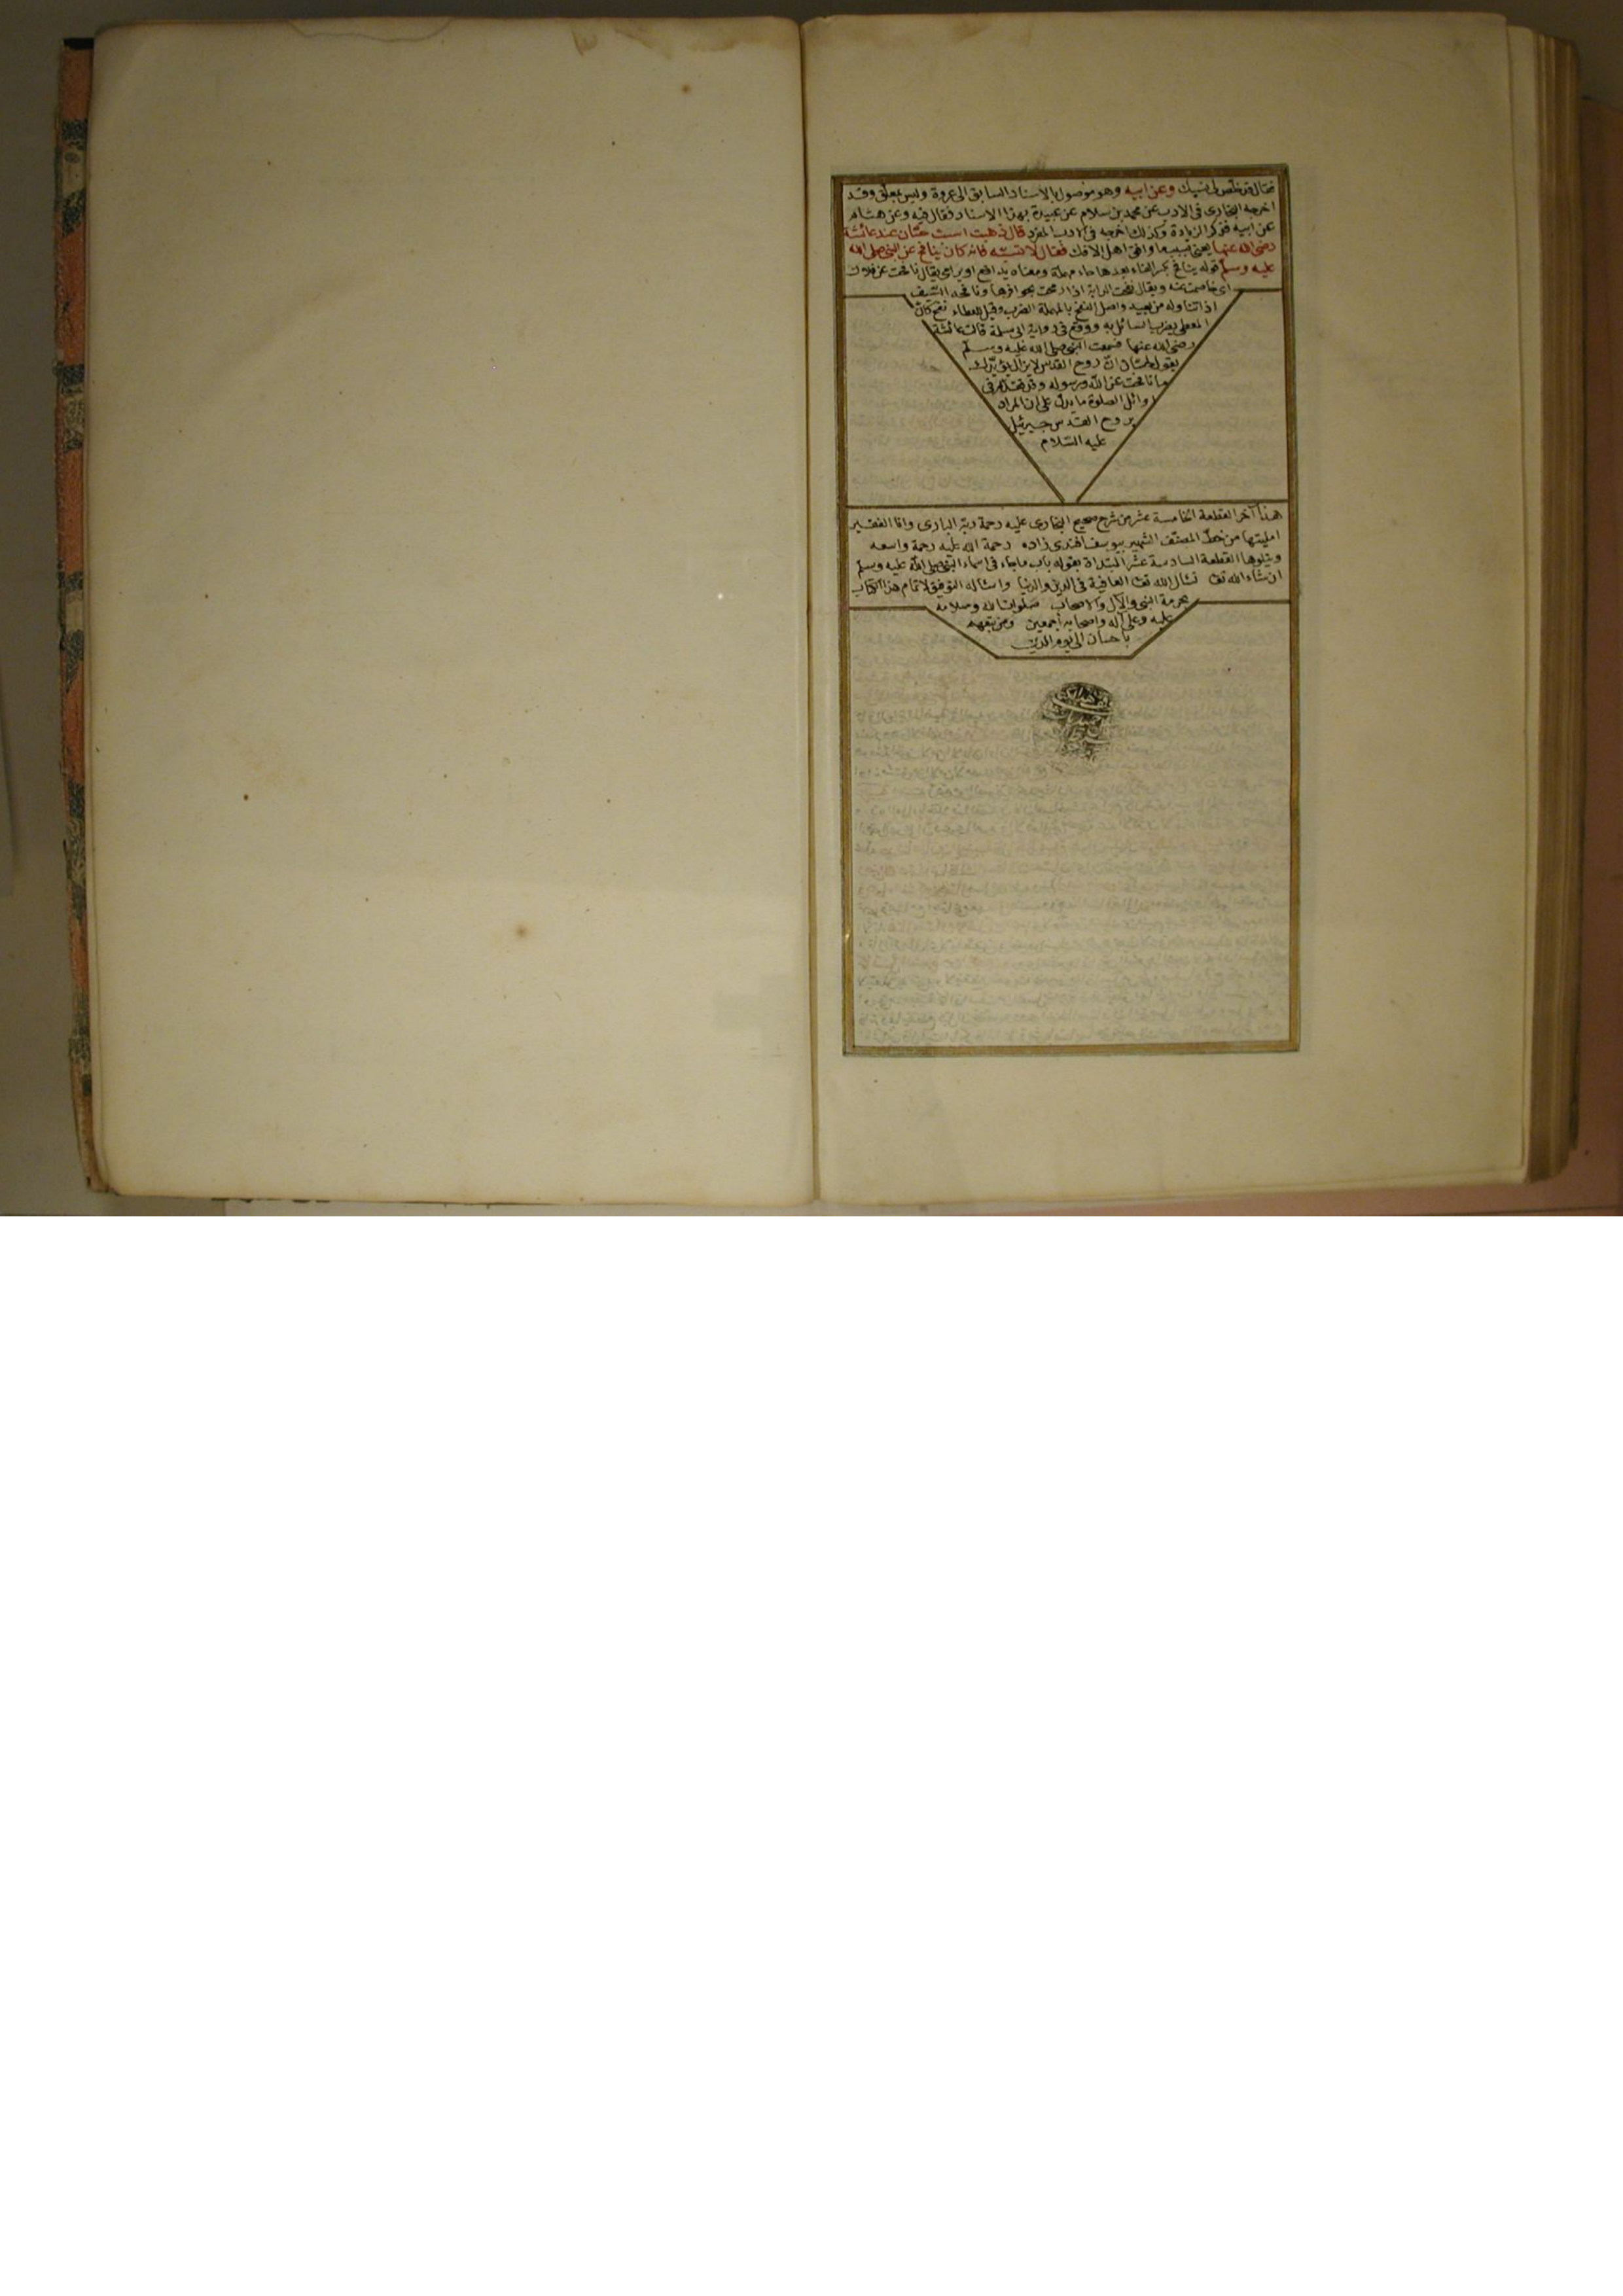 فقال فى تخليص نسبك وعن ابيه وهو موصول بالاسناد السابق الى عروة وليس بمعلق وقد
اخرجه البخارى فى الادب عن محمد بن سلام عن عبدة بهذا الاسناد فقال فيه وعن هشام
عن ابيه فذكر الزيادة وكذلك اخرجه فى الادب المفرد قال ذهبت اسب حسّان عند عائشة
رضى الله عنها يعنى بسبب ما وافق اهل الافك فقال لا تسبّه فانه كان ينافح عن النبى صلى الله
عليه وسلّم قوله ينافح بكسر الفاء بعدها حاء مهملة ومعناه يدافع او يرامى يقال نافحت عن فلان
اى خاصمت عنه ويقال نفحت الدابة اذا رمحت بحوافرها ونافحه السّيف
اذا تناوله من بعيد واصل النفح بالمهملة الضرب وقيل للعطاء نفح كان
المعطى يضرب السائل به ووقع فى رواية ابى سلمة قالت عائشة
رضى الله عنها فسمعت النبى صلى الله عليه وسلّم
يقول لحسّان انّ روح القدس لا يزال يؤيّدك
ما نافحت عن الله ورسوله وقد تقدّم فى
اوائل الصلوة ما يدل على ان المراد
بروح القدس جبرئيل
عليه السّلام
هذا آخر القطعة الخامسة عشر من شرح صحيح البخارى عليه رحمة ربّه البارى وانا الفقير
امليتها من خطّ المصنّف الشهير بيوسف افندى زاده رحمة الله عليه رحمة واسعه
ويتلوها القطعة السادسة عشر المبتدأة بقوله باب ما جاء فى اسماء النبى صلى الله عليه وسلّم
ان شاء الله تع نسأل الله تع العافية فى الدين والدنيا واسئاله التوفيق لاتمام هذا الكتاب
بحرمة النبى والآل والاصحاب صلوات الله وسلامه
عليه وعلى آله واصحابه أجمعين ومن تبعهم
باحسان الى يوم الدين